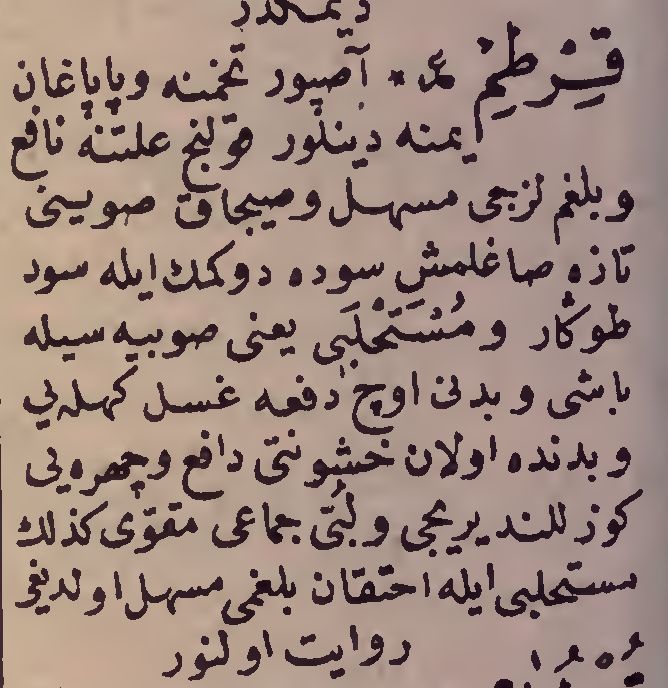 دیمكدر
قِرْطِمْ ع * آصپور تخمنه وپاپاغان
یمنه دینلور قولنج علتنه نافع
وبلغم لزجی مسهل وصیجاق صوینی
تازه صاغلمش سوده دوكمك ایله سود
طوكار ومُسْتَحْلَبِی یعنی صوبیه سیله
باشی وبدنی اوچ دفعه غسل كهله‌یی
وبدنده اولان خشونتی دافع وچهره‌یی
كوزللندیریجی ولُبّی جماعی مقوّی كذلك
مستحلبی ایله احتقان بلغمی مسهل اولدیغی
روایت اولنور